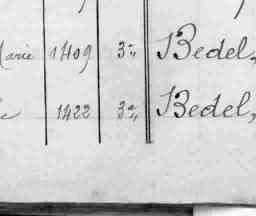 Marie 1409 3º, Bedel,
e 1422 3º, Bedel,